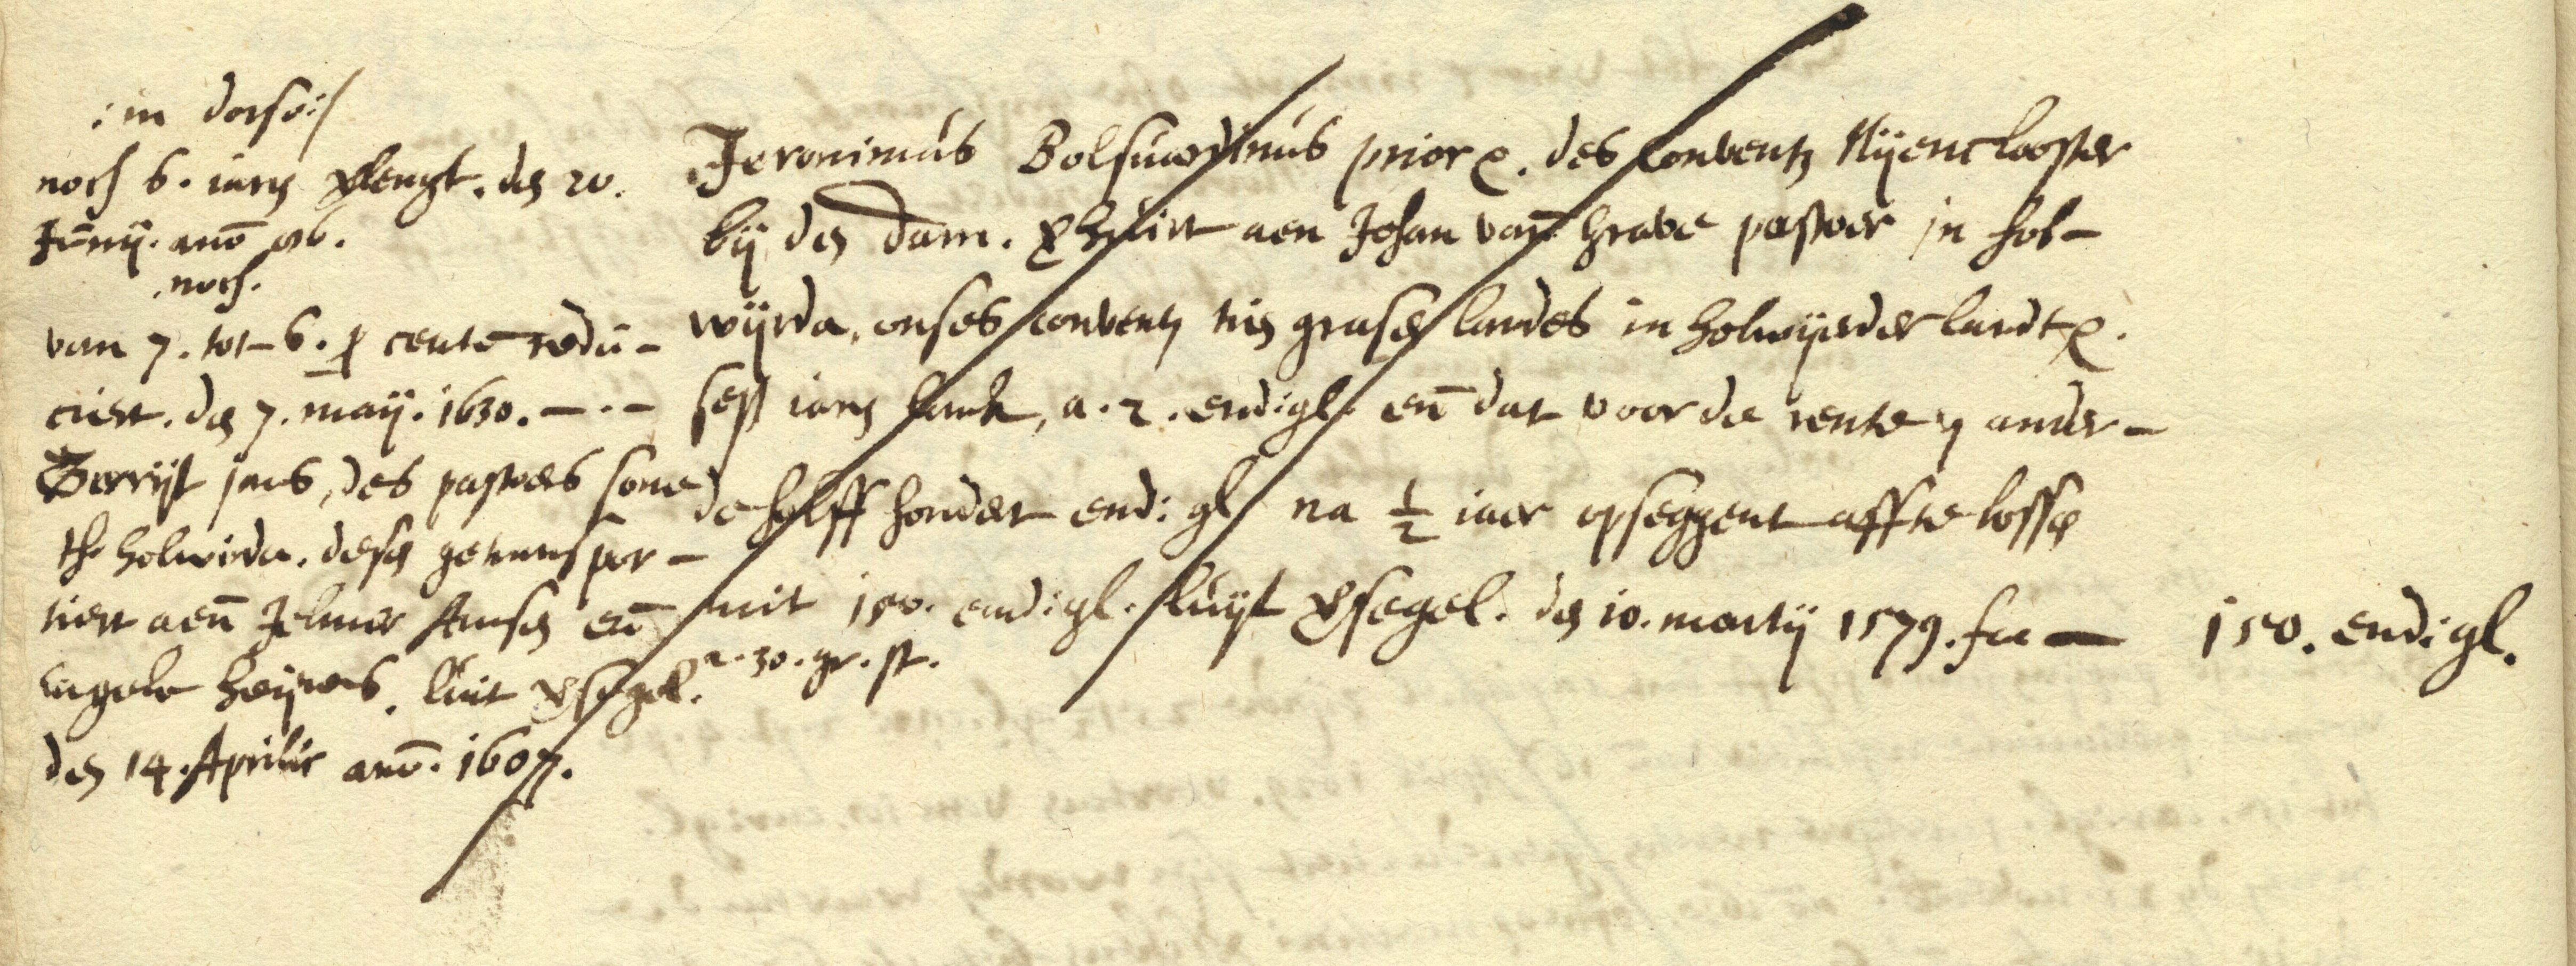 : in dorso :/
noch 6. iars verlengt. des 20.
Junij. ano 96.
noch.
van 7. tot 6. pro cento redu-
ciert. des 7. maij. 1630. — . —
Gerrijt jans, des pastoers sone
tho holwirda. desen getranspor-
tiert aen Jelmer en
heijnes. luit versegel.
den 14. Aprilis ano. 1607.
Jeronimus Bolsuardinus prior des conventz Nijenclooster
bij den dam. verhuirt aen Johan van Grave pastoer in hol-
wijrda, onses conventz tien grasen landes in holwijerder landt
sess iaren lanck, a. 2. end: gl. en dat voor de rente ander-
de halff hondert end: gl na ½ iaer opseggent aff te lossen
mit 150. end: gl. luijt versegel. den 10. martij 1579. fa —
a. 30. gr. st.
150. end: gl.